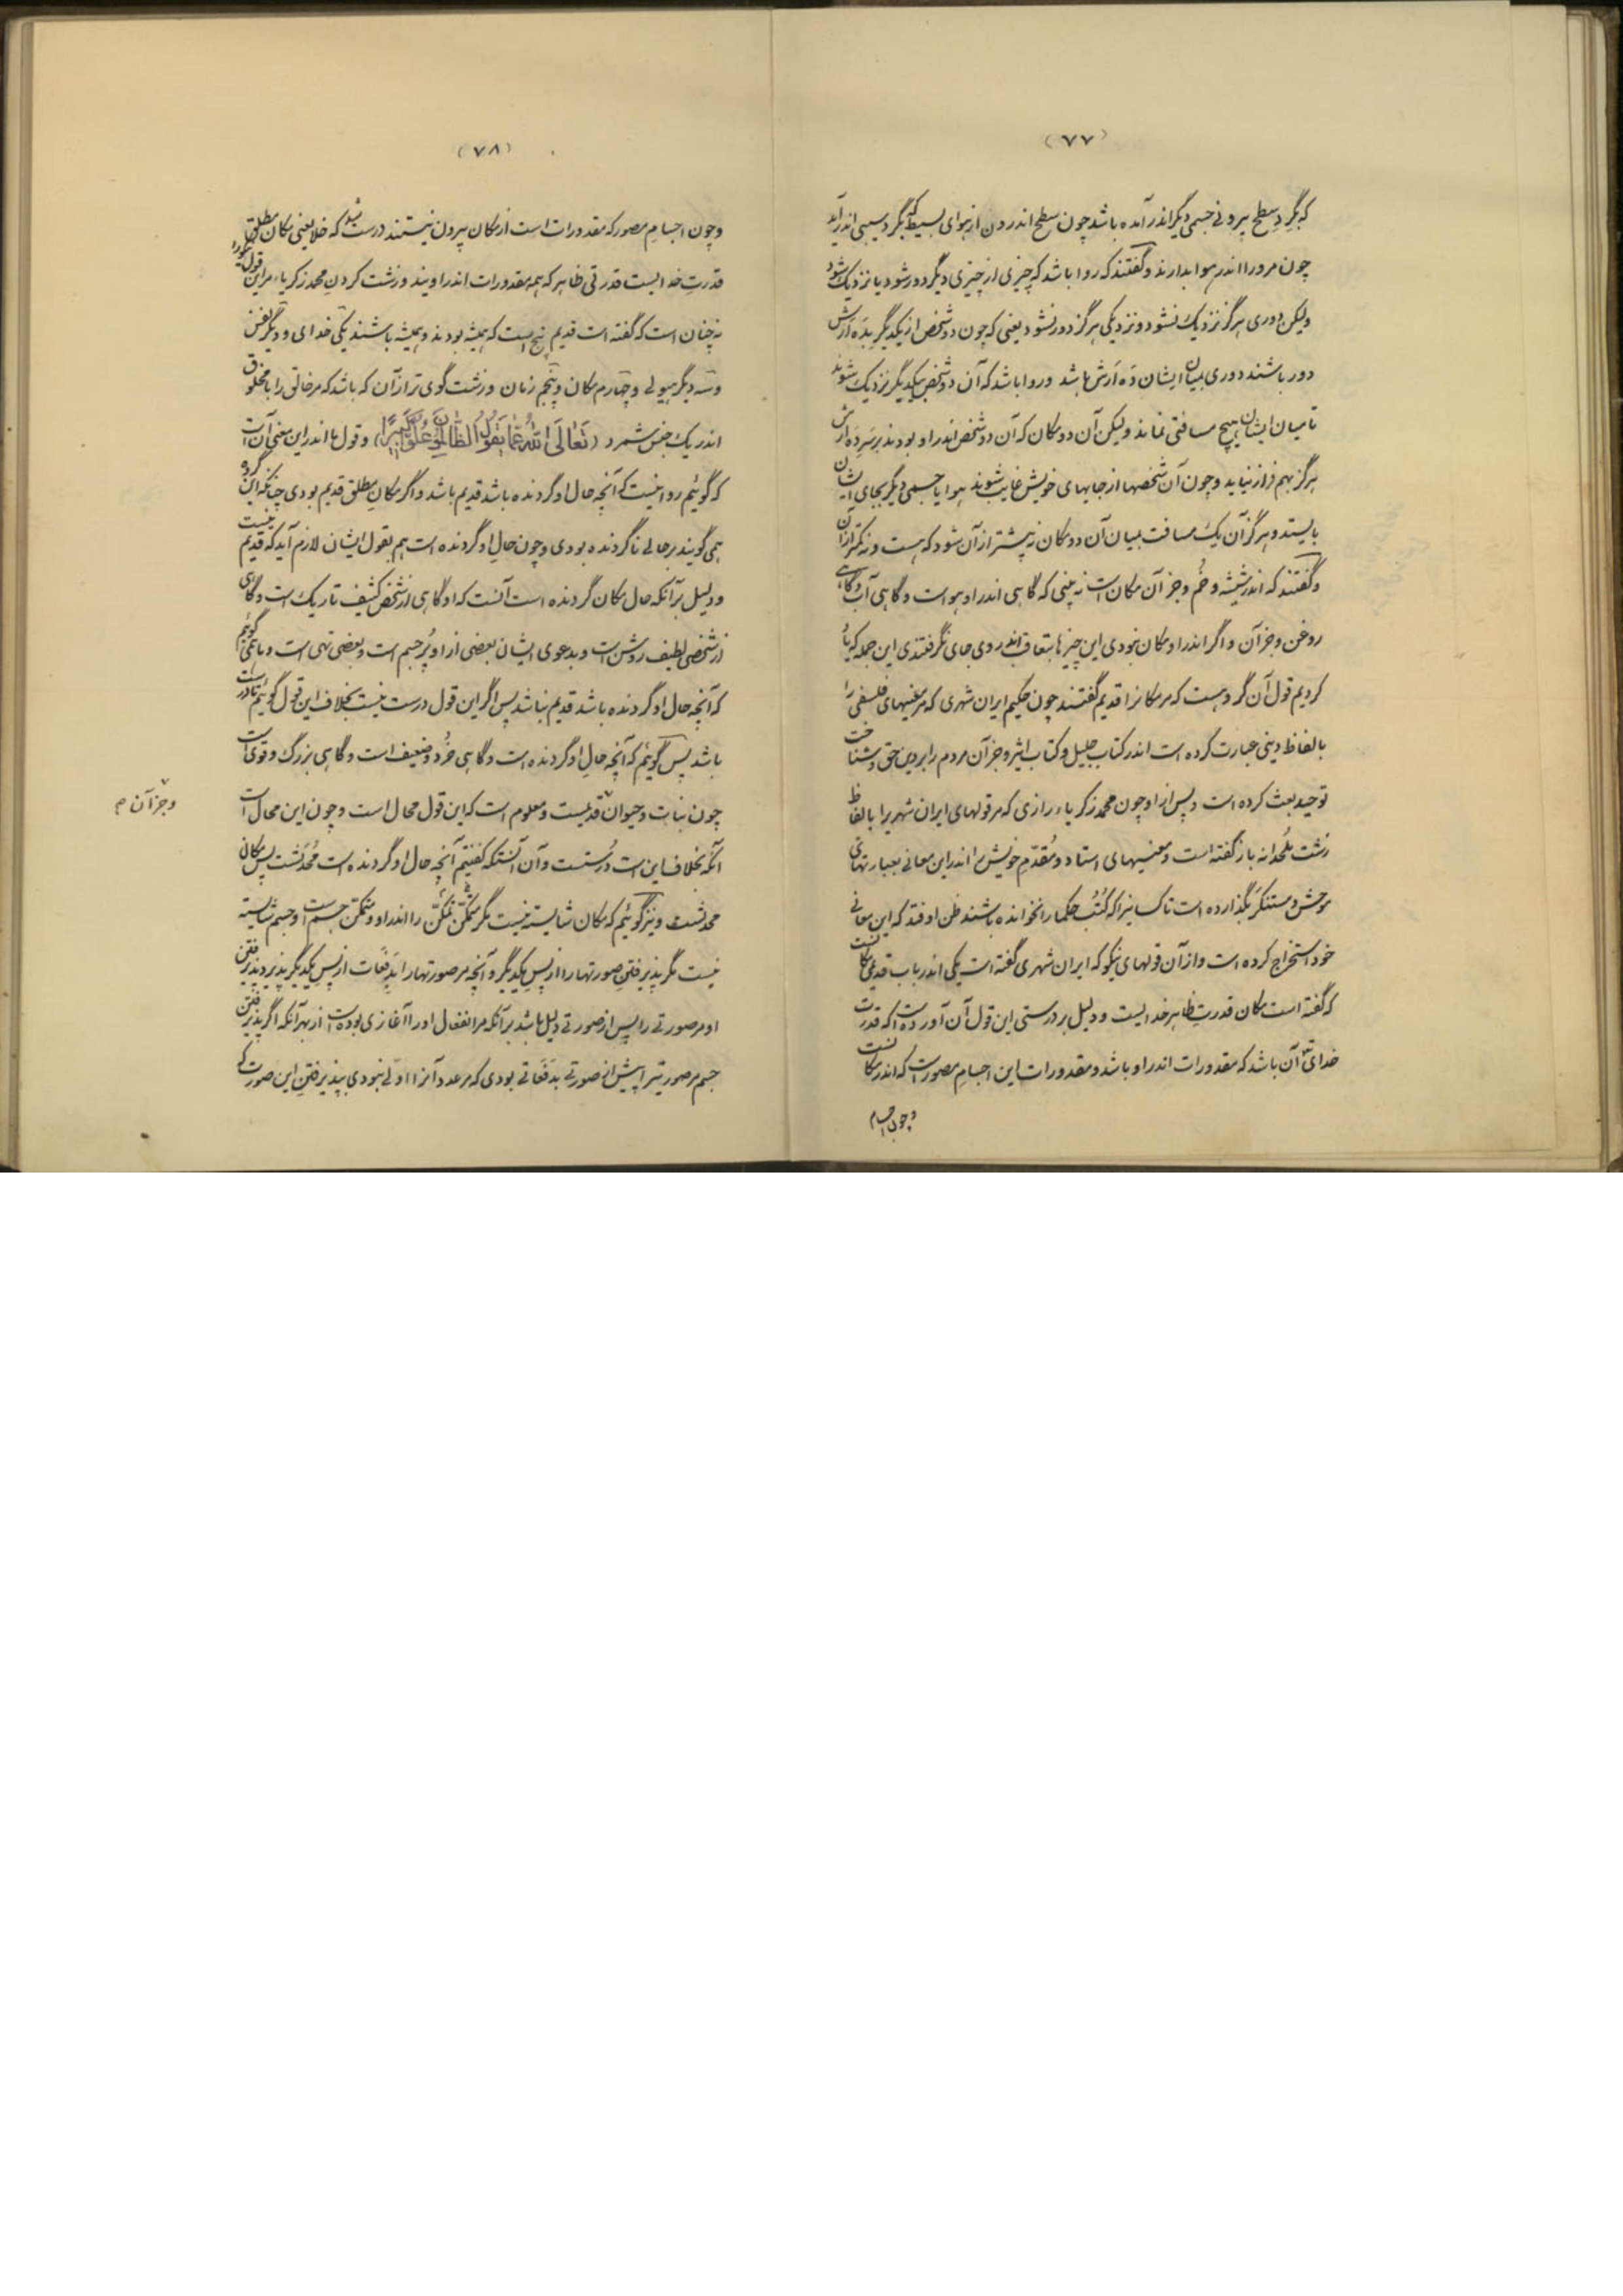 (۷۷)
که بگرد سطح بیرونی جسمی دیگر اندر آمده باشد چون سطح اندرون از هوای بسیط که بگرد سیبی اندر آید
چون مرورا اندر هوا بدارند و گفتند که روا باشد که چیزی از چیزی دیگر دور شود یا نزدیک شود
ولیکن دوری هرگز نزدیک نشود و نزدیکی هرگز دور نشود یعنی که چون دو شخص از یکدیگر بده ارش
دور باشند دوری میان ایشان ده ارش باشد و روا باشد که آن دو شخص بیکدیگر نزدیک شوند
تا میان ایشان هیچ مسافتی نماند ولیکن آن دو مکان که آن دو شخص اندر او بودند بر سر ده ارش
هرگز بهم فراز نیاید و چون آن شخصها از جایهای خویش غایب شوند هوا یا جسمی دیگر بجای ایشان
بایستد و هرگز آن یک مسافت بمیان آن دو مکان نه بیشتر از آن شود که هست و نه کمتر از آن
و گفتند که اندر شیشه و خم و جز آن مکان است نه بینی که گاهی اندر او هواست و گاهی آب و گاهی
روغن و جز آن و اگر اندر او مکان نبودی این چیزها بتعاقب اندر وی جای نگرفتندی این جمله که یاد
کردیم قول آن گروهست که مر مکانرا قدیم گفتند چون حکیم ایران شهری که مر معنیهای فلسفی را
بالفاظ دینی عبارت کرده است اندر کتاب جلیل و کتاب اثیر و جز آن مردم را بر دین حق و شناخت
توحید بعث کرده است و پس از او چون محمد زکریاء رازی که مر قولهای ایران شهریرا بالفاظ
زشت ملحدانه باز گفته است و معنیهای استاد و مقدم خویش را اندر این معانی بعبارتهای
موحش و مستنکر بگذارده است تا کسانیرا که کتب حکما را نخوانده باشند ظن اوفتد که این معانی
خود استخراج کرده است و از آن قولهای نیکو که ایران شهری گفته است یکی اندر باب قدیمی مکانست
که گفته است مکان قدرت ظاهر خدایست و دلیل بر درستی این قول آن آورده است که قدرت
خدای آن باشد که مقدورات اندر او باشد و مقدورات این اجسام مصور است که اندر مکانست
و چون اجسام
(۷۸)
و چون اجسام مصور که مقدورات است از مکان بیرون نیستند درست شد که خلا یعنی مکان مطلق
قدرت خدایست قدرتی ظاهر که همه مقدورات اندر اویند و زشت کردن محمد زکریاء مر این قول
نه چنان است که گفته است قدیم پنج است که همیشه بودند و همیشه باشند یکی خدای و دیگر نفس
و سه دیگر هیولی و چهارم مکان و پنجم زمان و زشت گوی تر از آن که باشد که مر خالق را با مخلوق
اندر یک جنس شمرد (تَعالَی اللهُ عَمّا یَقُولُ الظّالِمُونَ عُلُوًّا کَبیرًا) و قول ما اندر این معنی آن است
که گوئیم روا نیست که آنچه حال او گردنده باشد قدیم باشد و اگر مکان مطلق قدیم بودی چنانکه این گروه
همی گویند بر حالی ناگردنده بودی و چون حال او گردنده است هم بقول ایشان لازم آید که قدیم نیست
و دلیل بر آنکه حال مکان گردنده است آنست که او گاهی از شخص کثیف تاریک است و گاهی
از شخصی لطیف روشن است و بدعوی ایشان بعضی از او پر جسم است و بعضی تهی است و ما همی گوئیم
که آنچه حال او گردنده باشد قدیم نباشد پس اگر این قول درست نیست بخلاف این قول گوئیم تا درست
باشد پس گوئیم که آنچه حال او گردنده است و گاهی خرد و ضعیف است و گاهی بزرگ و قوی است
چون نبات و حیوان قدیمست و معلوم است که این قول محال است و چون این محال است
آنکه بخلاف این است درستست و آن آنستکه گفتیم آنچه حال او گردنده است محدثست پس مکان
محدثست و نیز گوئیم که مکان شایسته نیست مگر متمکن را اندر او و متمکن جسم است و جسم شایسته
نیست مگر پذیرفتن صورتها را از پس یکدیگر و آنچه مر صورتها را بدفعات از پس یکدیگر پذیرد پذیرفتن
او مر صورتی را پس از صورتی دلیل باشد بر آنکه مر انفعال او را آغازی بوده است از بهر آنکه اگر پذیرفتن
جسم مر صورتیرا پیش از صورتی بدفعاتی بودی که مر عدد آنرا اولی نبودی بپذیرفتن این صورت که
و جز آن م